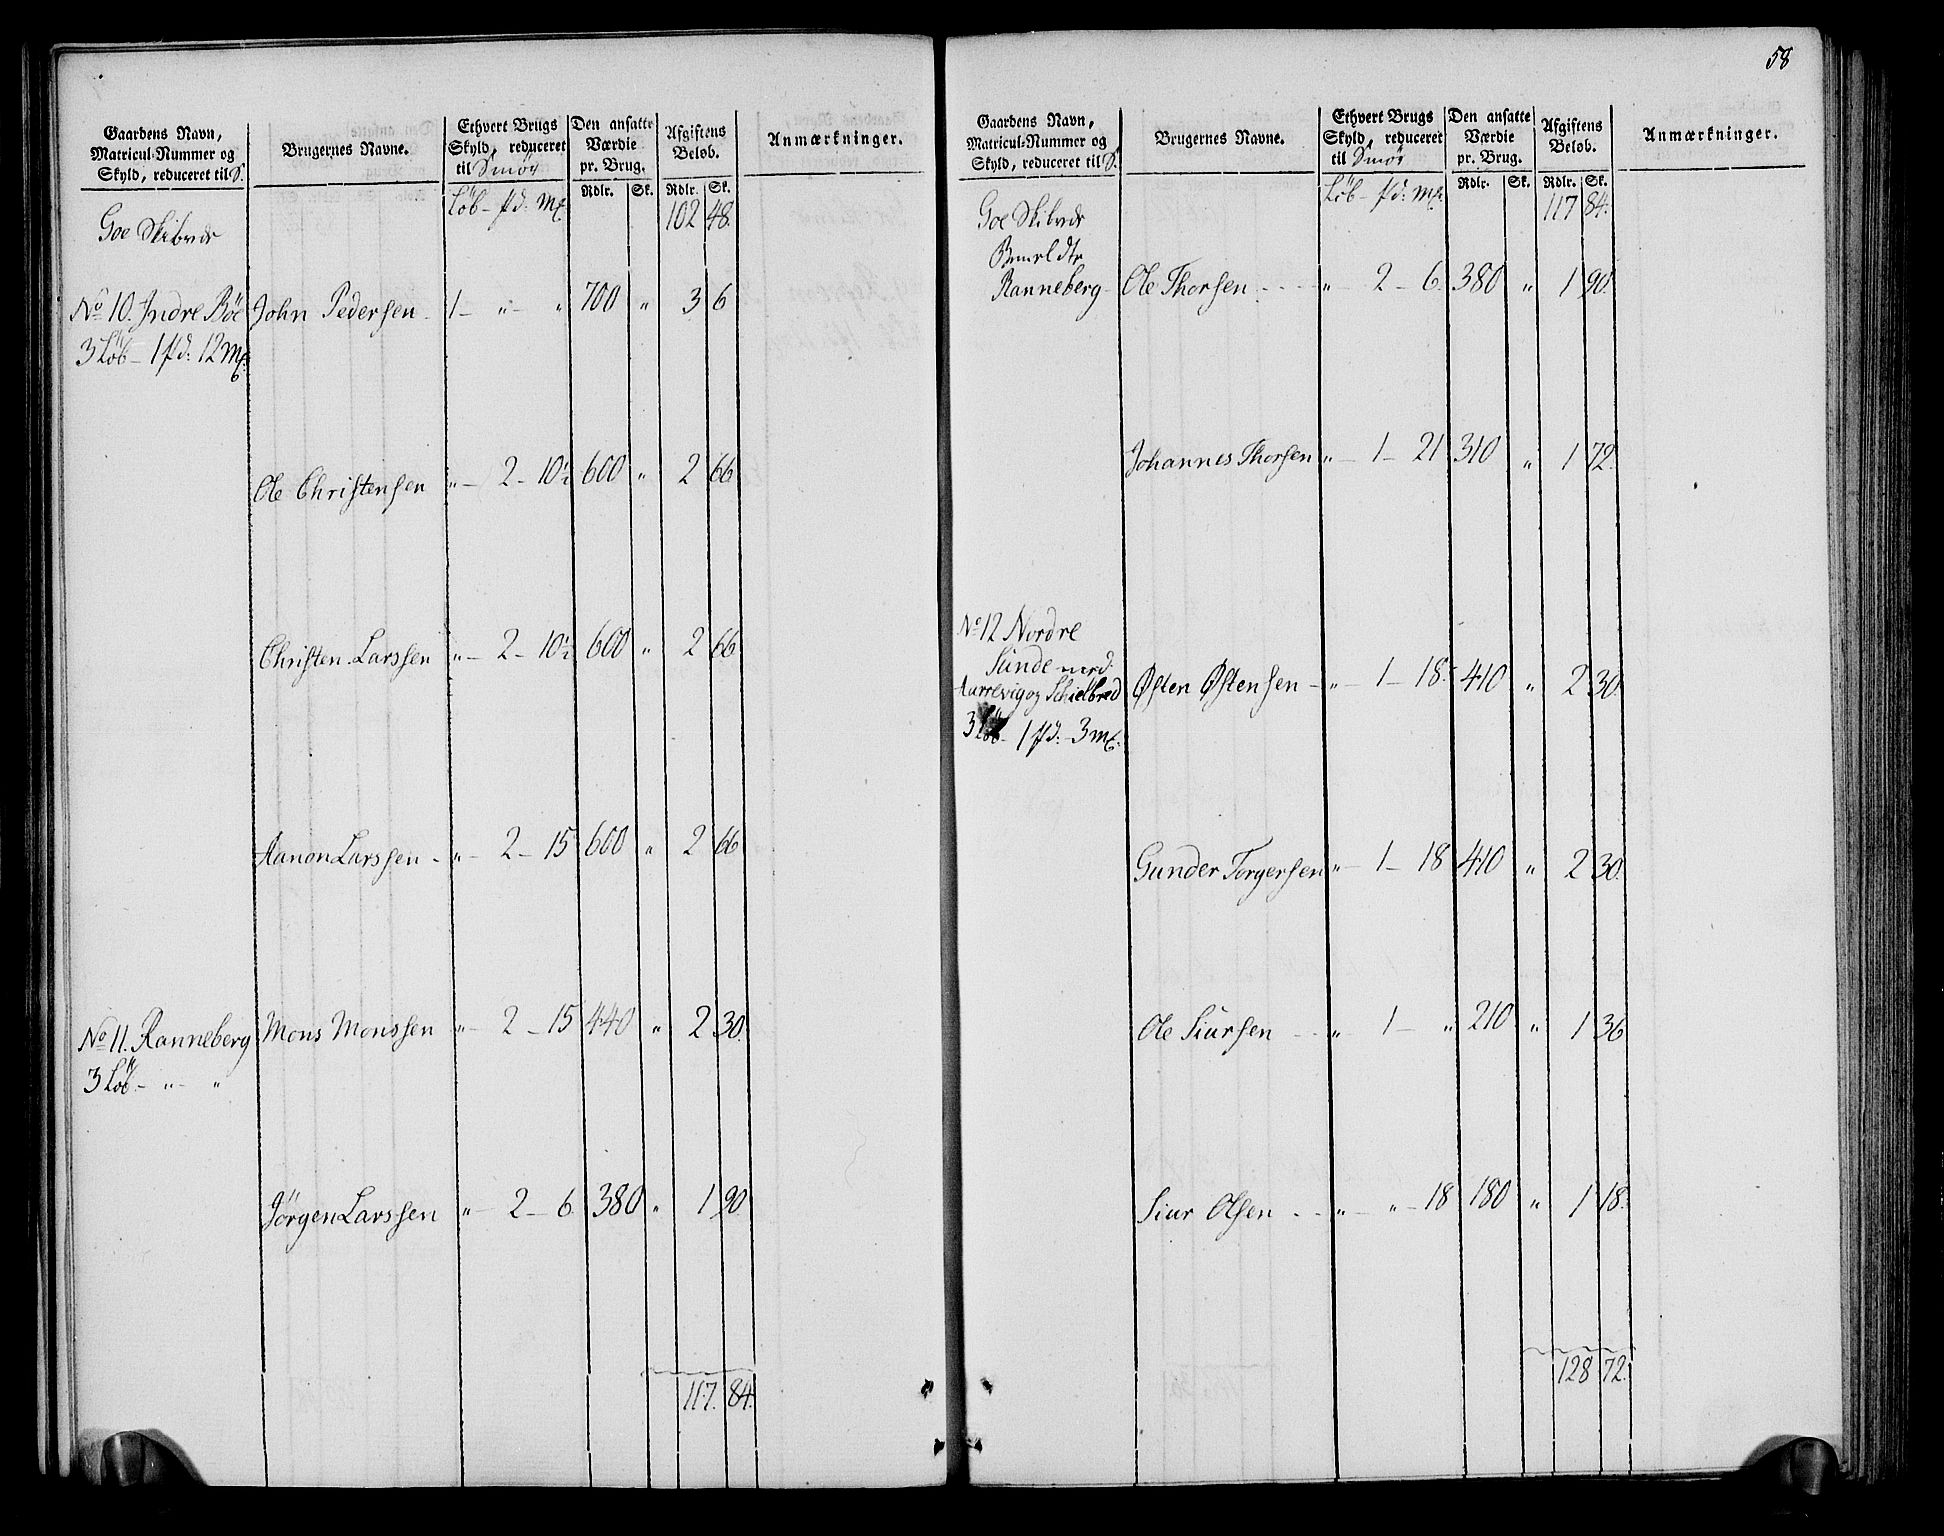 Gaardens Navn,
Matricul-Nummer og
Skyld, reduceret til S.
Brugernes Navne.
Ethvert Brugs
Skyld, reduceret
til Smör
Den ansatte
Værdie
pr. Brug.
Afgiftens
Beløb.
Anmærkninger.
Löb - pd: mk
Rdlr. Sk. Rdlr. Sk.
102 48.
Goe Skibrede
No 10. Indre Böe John Pedersen - 1 - " - " 700 " 3 6
3 Löb - 1 pd: 12 mk:
Ole Christensen " - 2 - 10½ 600 " 2 66
Christen Larssen " - 2 - 10½ 600 " 2 66
Aanon Larssen - " - 2 - 15 600 " 2 66
No 11. Ranneberg Mons Monssen " - 2 - 15 440 " 2 30.
3 Löb - " - "
Jörgen Larssen " - 2 - 6 380 " 1 90
117. 84.
58
Gaardens Navn,
Matricul-Nummer og
Skyld, reduceret til S.
Brugernes Navne.
Ethvert Brugs
Skyld, reduceret
til Smör
Den ansatte
Værdie
pr. Brug.
Afgiftens
Beløb.
Anmærkninger.
Löb - pd: mk
Rdlr. Sk. Rdlr. Sk.
117 84.
Goe Skibrede
Ranneberg - Ole Thorsen - - - - " - 2 - 6. 380 " 1 90.
Johannes Thorsen " - 1 - 21 310 " 1 72.
No 12 Nordre
Sunde med
Aarrevig og Schielbred Østen Østensen - " - 1 - 18. 410 " 2 30.
3 Löb - 1 pd: - 3 mk:
Gunder Torgersen " - 1 - 18 410 " 2 30.
Ole Siursen - - " - 1 - " 210 " 1 36
Siur Olsen - - " - " - 18 180 " 1 18.
128 72.